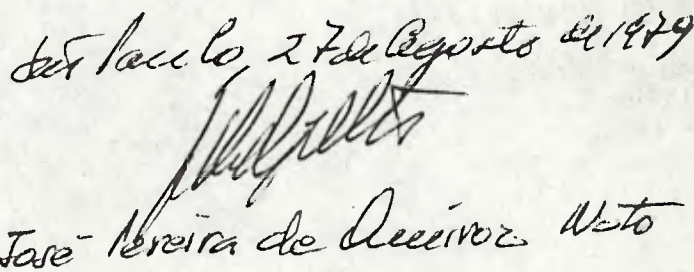 São Paulo, 27 de Agosto de 1979
José Pereira de Queiroz Neto